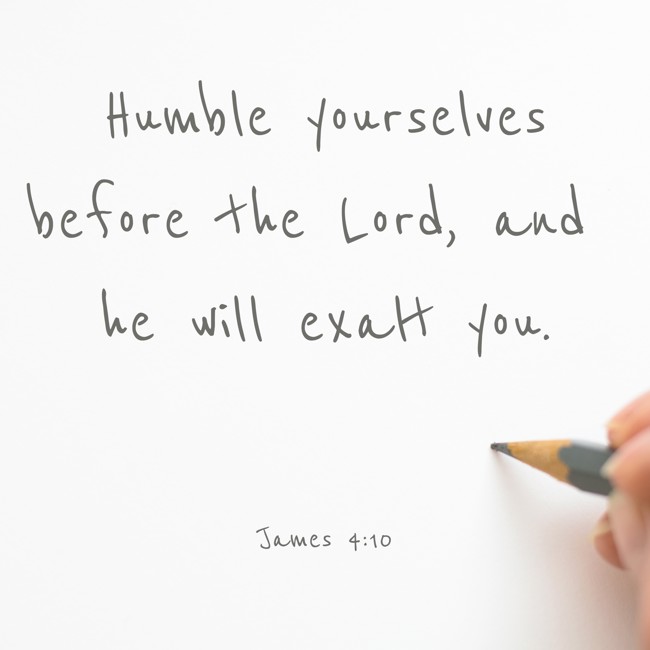 Humble yourselves
before the Lord, and
he will exalt you.
James 4:10